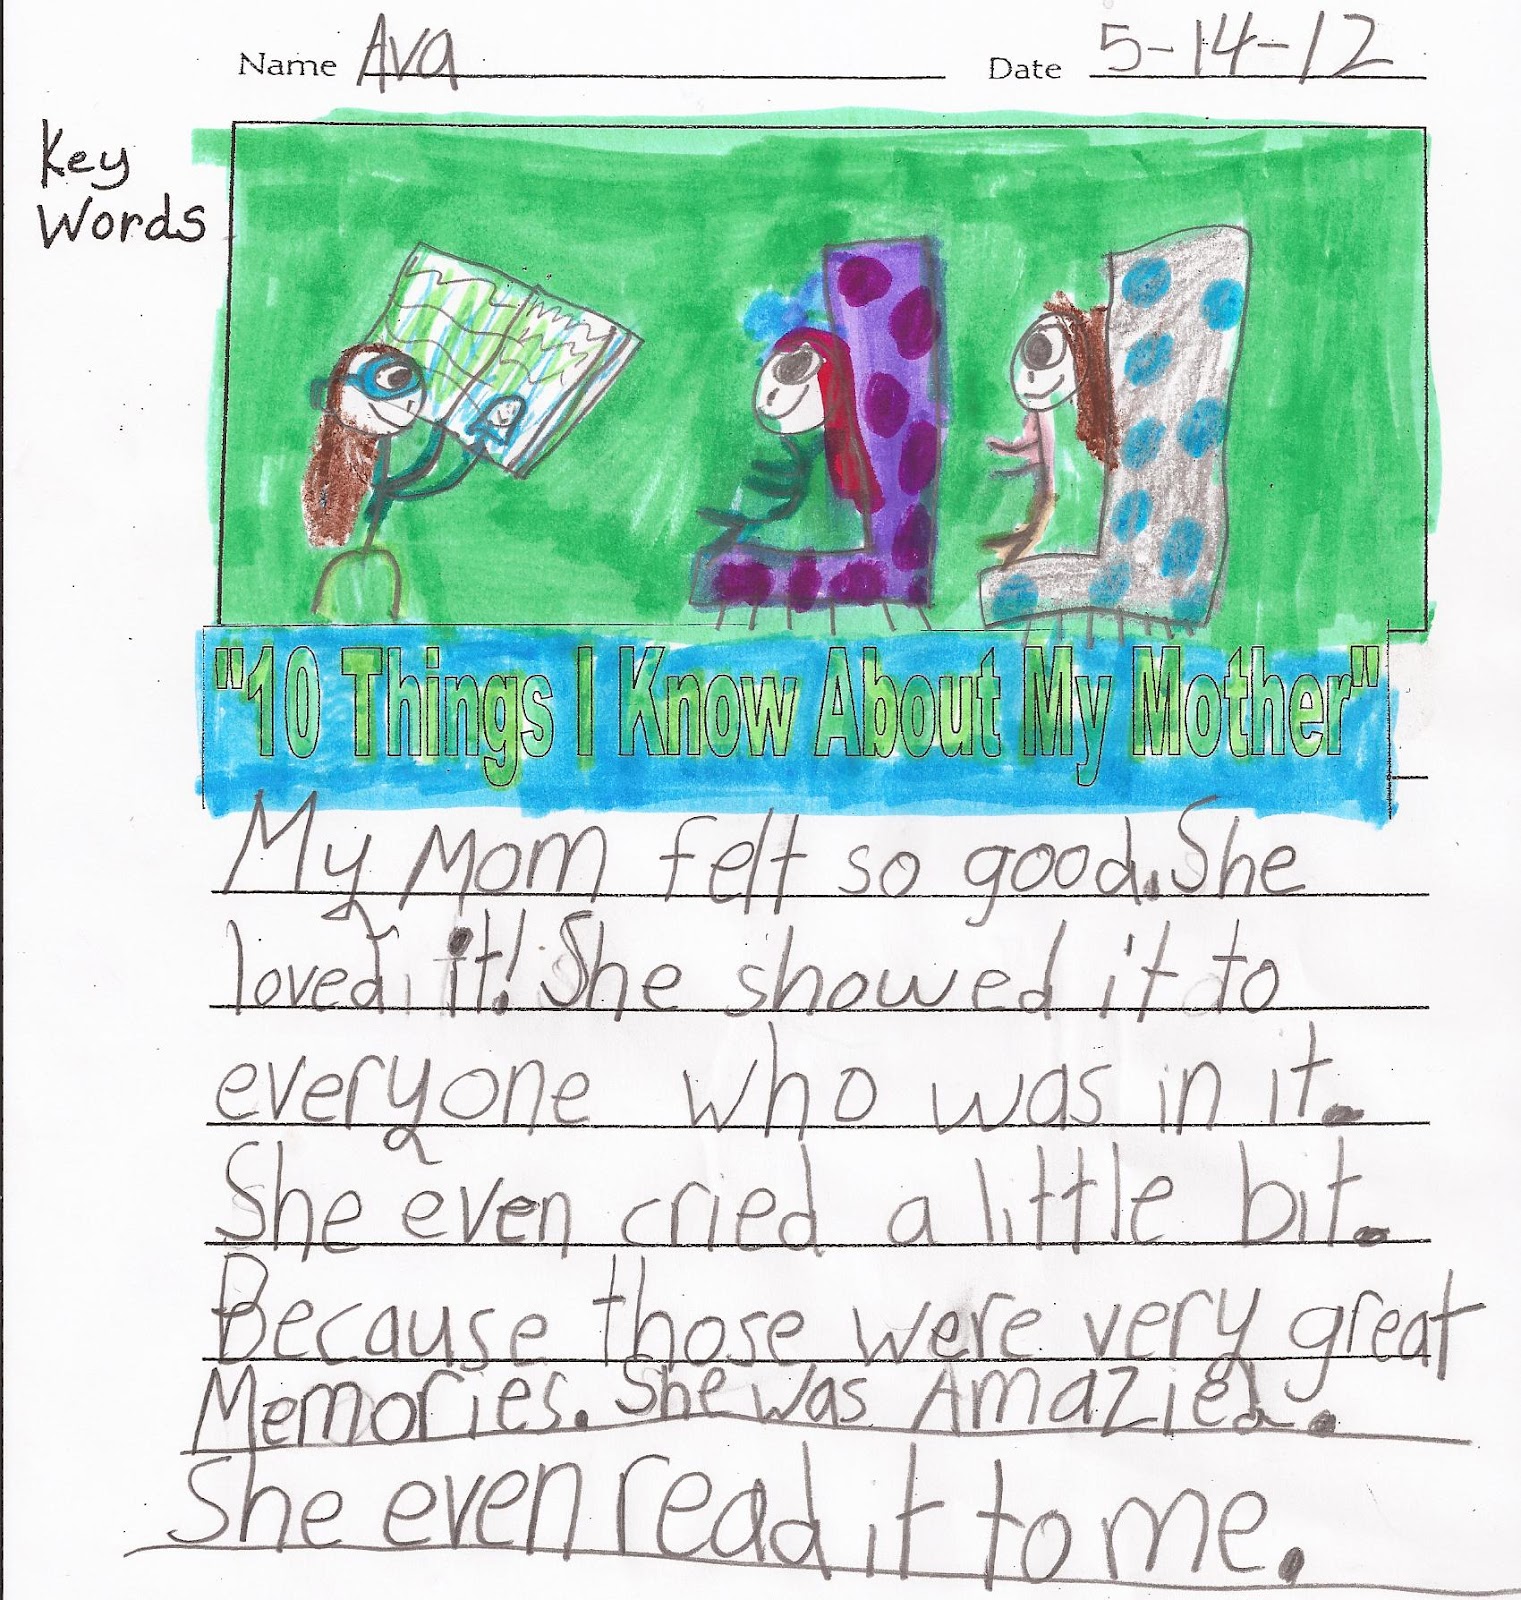 Name Ava Date 5-14-12
Key
Words
"10 Things I Know About My Mother"
My Mom felt so good. She
loved it! She showed it to
everyone who was in it.
She even cried a little bit.
Because those were very great
Memories. She was Amazied.
She even read it to me.